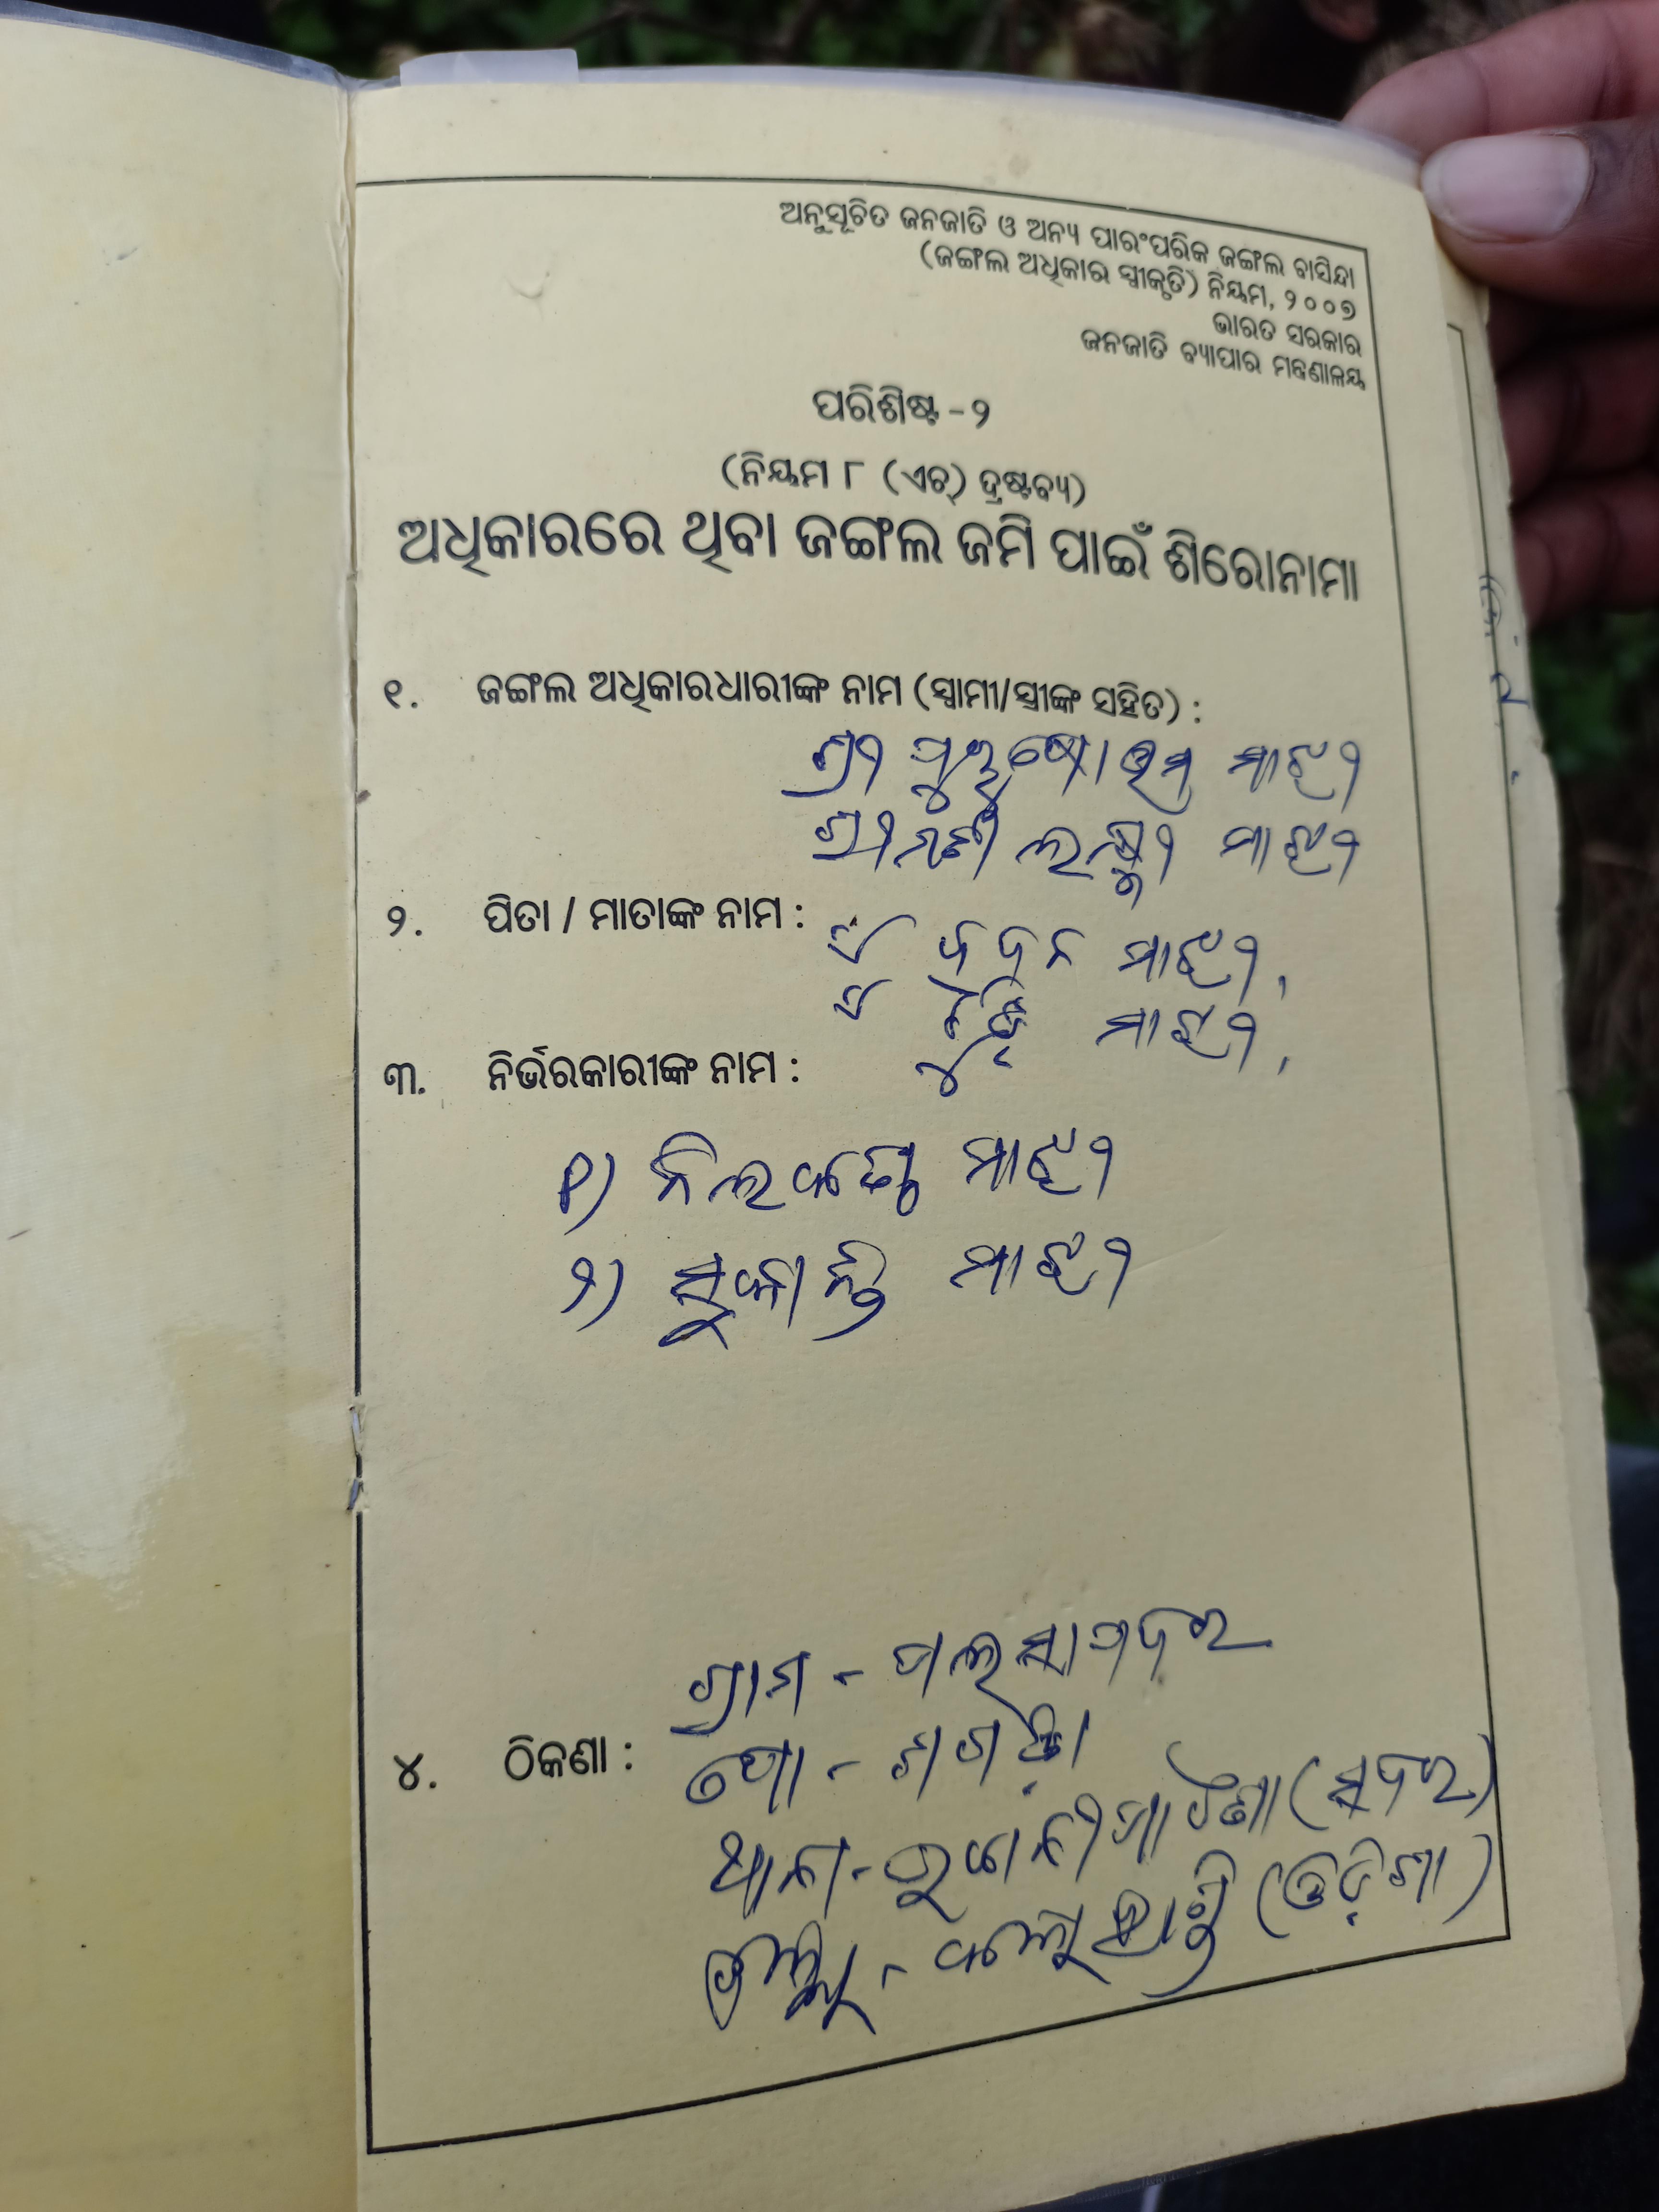 ଅନୁସୂଚିତ ଜନଜାତି ଓ ଅନ୍ୟ ପାରଂପରିକ ଜଙ୍ଗଲ ବାସିନ୍ଦା
(ଜଙ୍ଗଲ ଅଧିକାର ସ୍ୱୀକୃତି) ନିୟମ, ୨୦୦୭
ଭାରତ ସରକାର
ଜନଜାତି ବ୍ୟାପାର ମନ୍ତ୍ରଣାଳୟ
ପରିଶିଷ୍ଟ - ୨
(ନିୟମ ୮ (ଏଚ୍) ଦ୍ରଷ୍ଟବ୍ୟ)
ଅଧିକାରରେ ଥିବା ଜଙ୍ଗଲ ଜମି ପାଇଁ ଶିରୋନାମା
୧. ଜଙ୍ଗଲ ଅଧିକାରଧାରୀଙ୍କ ନାମ (ସ୍ୱାମୀ/ସ୍ତ୍ରୀଙ୍କ ସହିତ) :
ଶ୍ରୀ ପୁରୁଷୋତ୍ତମ ମାଝୀ
ଶ୍ରୀମତୀ ମାଝୀ
୨. ପିତା / ମାତାଙ୍କ ନାମ :
ମାଝୀ
ମାଝୀ
୩. ନିର୍ଭରକାରୀଙ୍କ ନାମ :
୧) ନିଳକଣ୍ଠ ମାଝୀ
୨) ସୁକାନ୍ତି ମାଝୀ
ଗ୍ରାମ -
୪. ଠିକଣା :
ପୋ -
ଥାନା - (ସଦର)
ଜିଲ୍ଲା - (ଓଡ଼ିଶା)